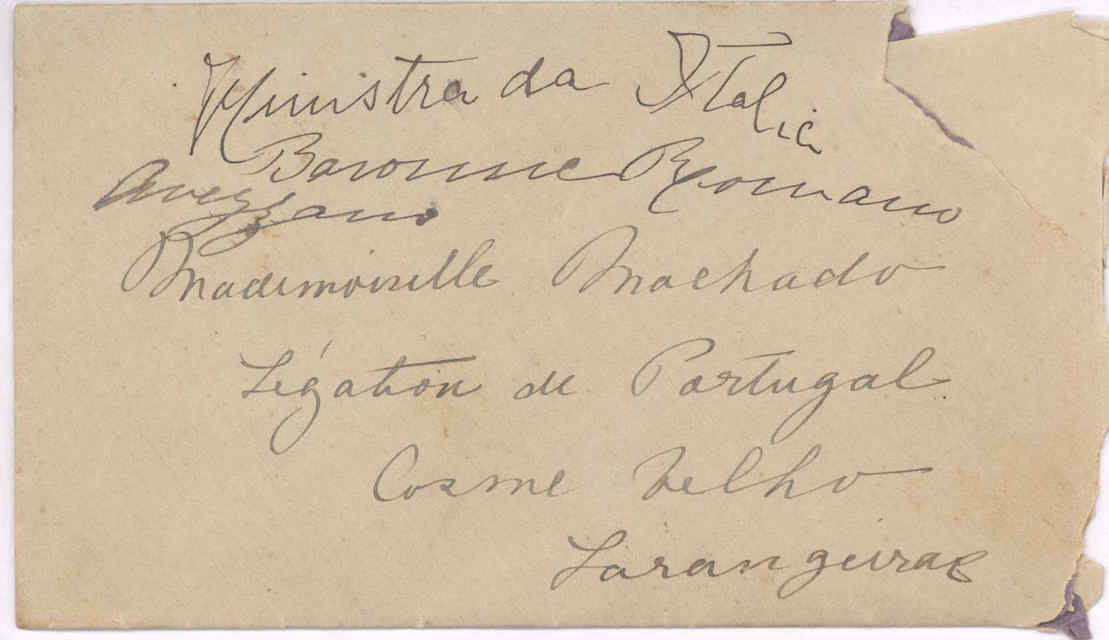 Ministra da Italia
Baronne Romano
Avezzano
Mademoiselle Machado
Légation de Portugal
Cosme Velho
Larangeiras